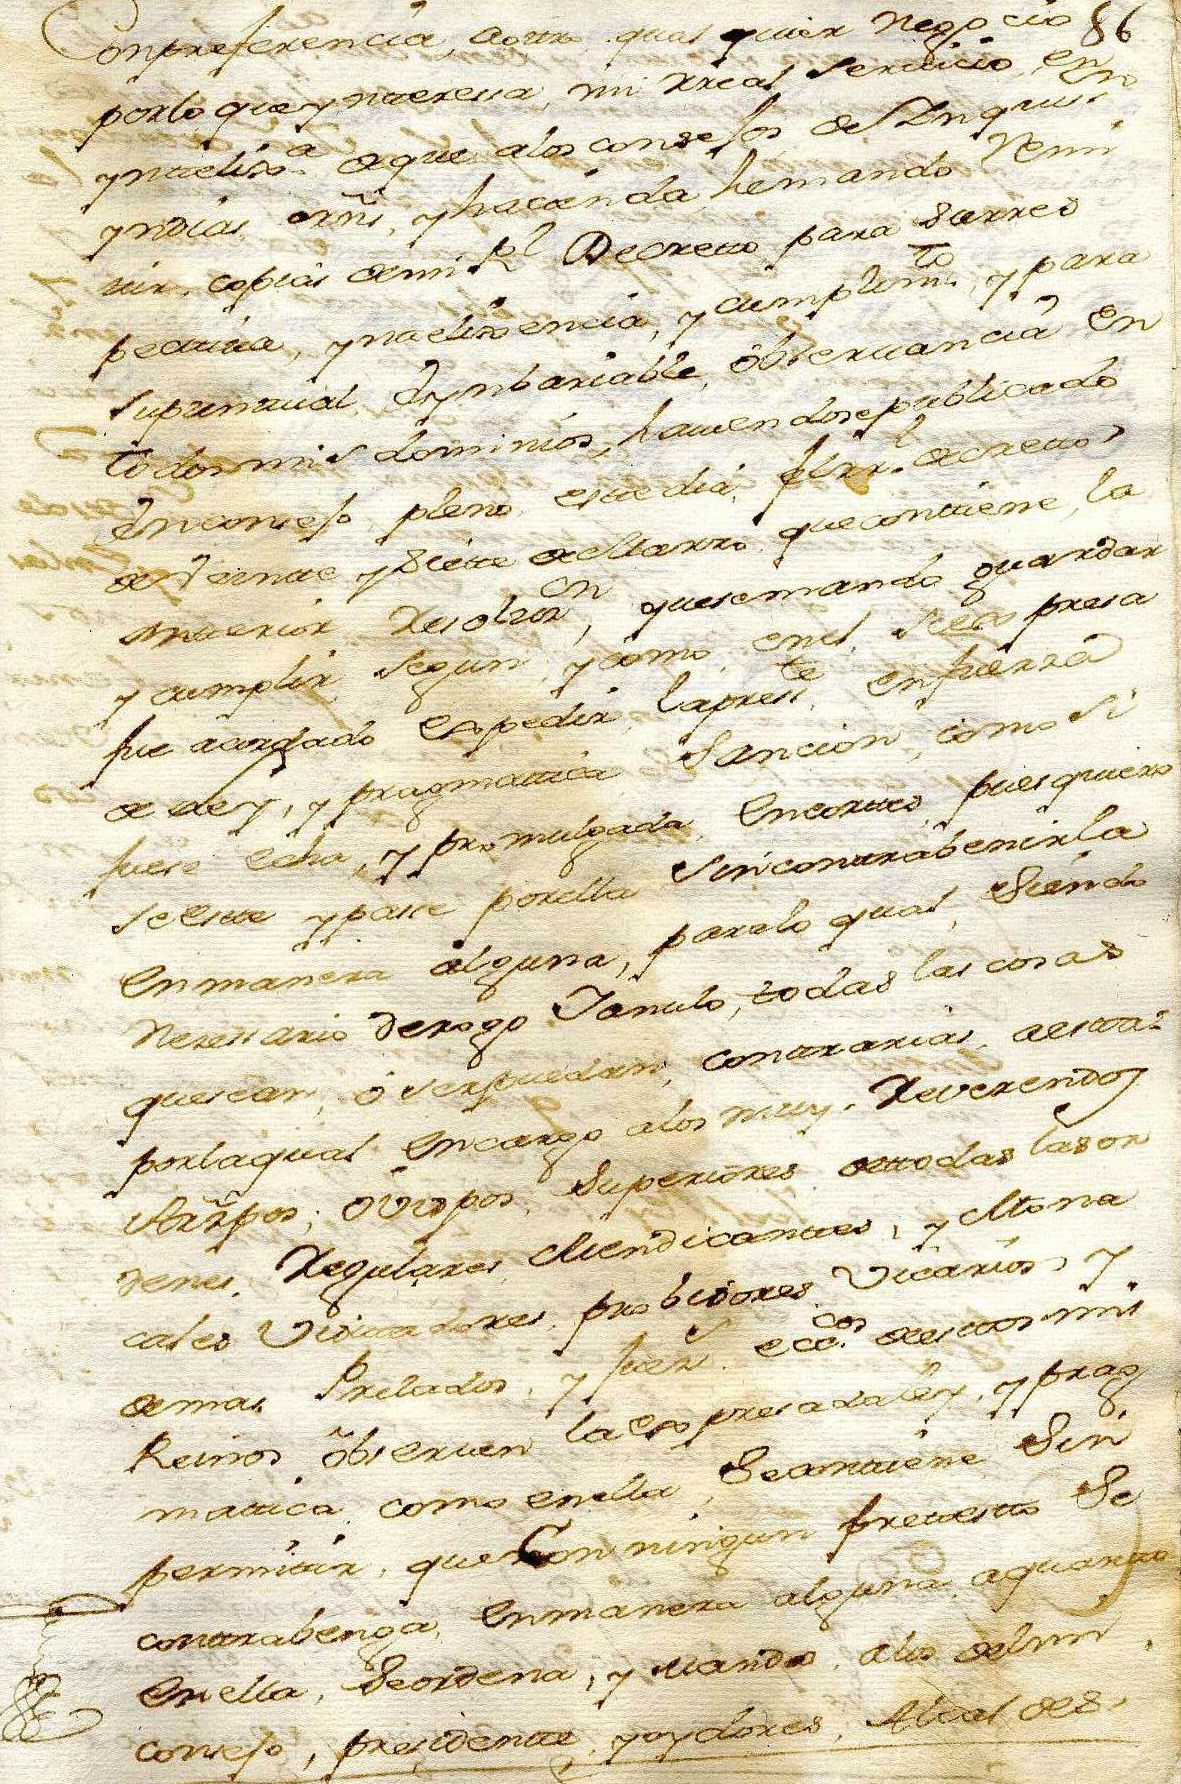 Conpreferencia, aotro qual quier Negocio 86
porlo que ynteressa mi Rreal Servicio, en
yntelixª de que alos consejos de Inquisi
yndias, ordñs, y hacienda hemando Remi
tir, copias demi Rl Decretto para Surres
pectiva, ynttelixencia, y cumplimto, y para
supuntual, Eynbariable, observancia en
todos mis dominios, haviendose publicado
Enconsejo pleno, este dia, el rrl decretto
de Veintte y Siette de Marzo, que contiene, la
antterior Resolzon, quesemando guardar
y cumplir, segun, y como, en el, se expresa
fue acordado expedir, la preste, enfuerza
de Ley, y pragmatica Sancion, como Si
fuese echa, y promulgada, Encorttes, pues quiero
se estte y passe porella Sincontrabenirla
Enmanera alguna, paralo qual, Siendo
Nezessario Derogo Yanulo, todas las cosas
quesean, ó ser puedan, contrarias, aesta:
porlaqual Encargo alos muy, Reverendos
Arzpos, Ovispos, Superiores dettodas las or
denes, Regulares, Mendicantes, y Mona
cales Visitadores, probisores, Vicarios, y
demas Prelados, y juezs eccos destos mis
Reinos observen la expresada ley, y prag
mattica como enella, Secontiene Sin
permitir, que Con ningun prettestto Se
contrabenga, Enmanera alguna, aquantto
Enella, Seordena, y Mando, alos delmi
consejo, presidentte, y oydores, Alcaldes,